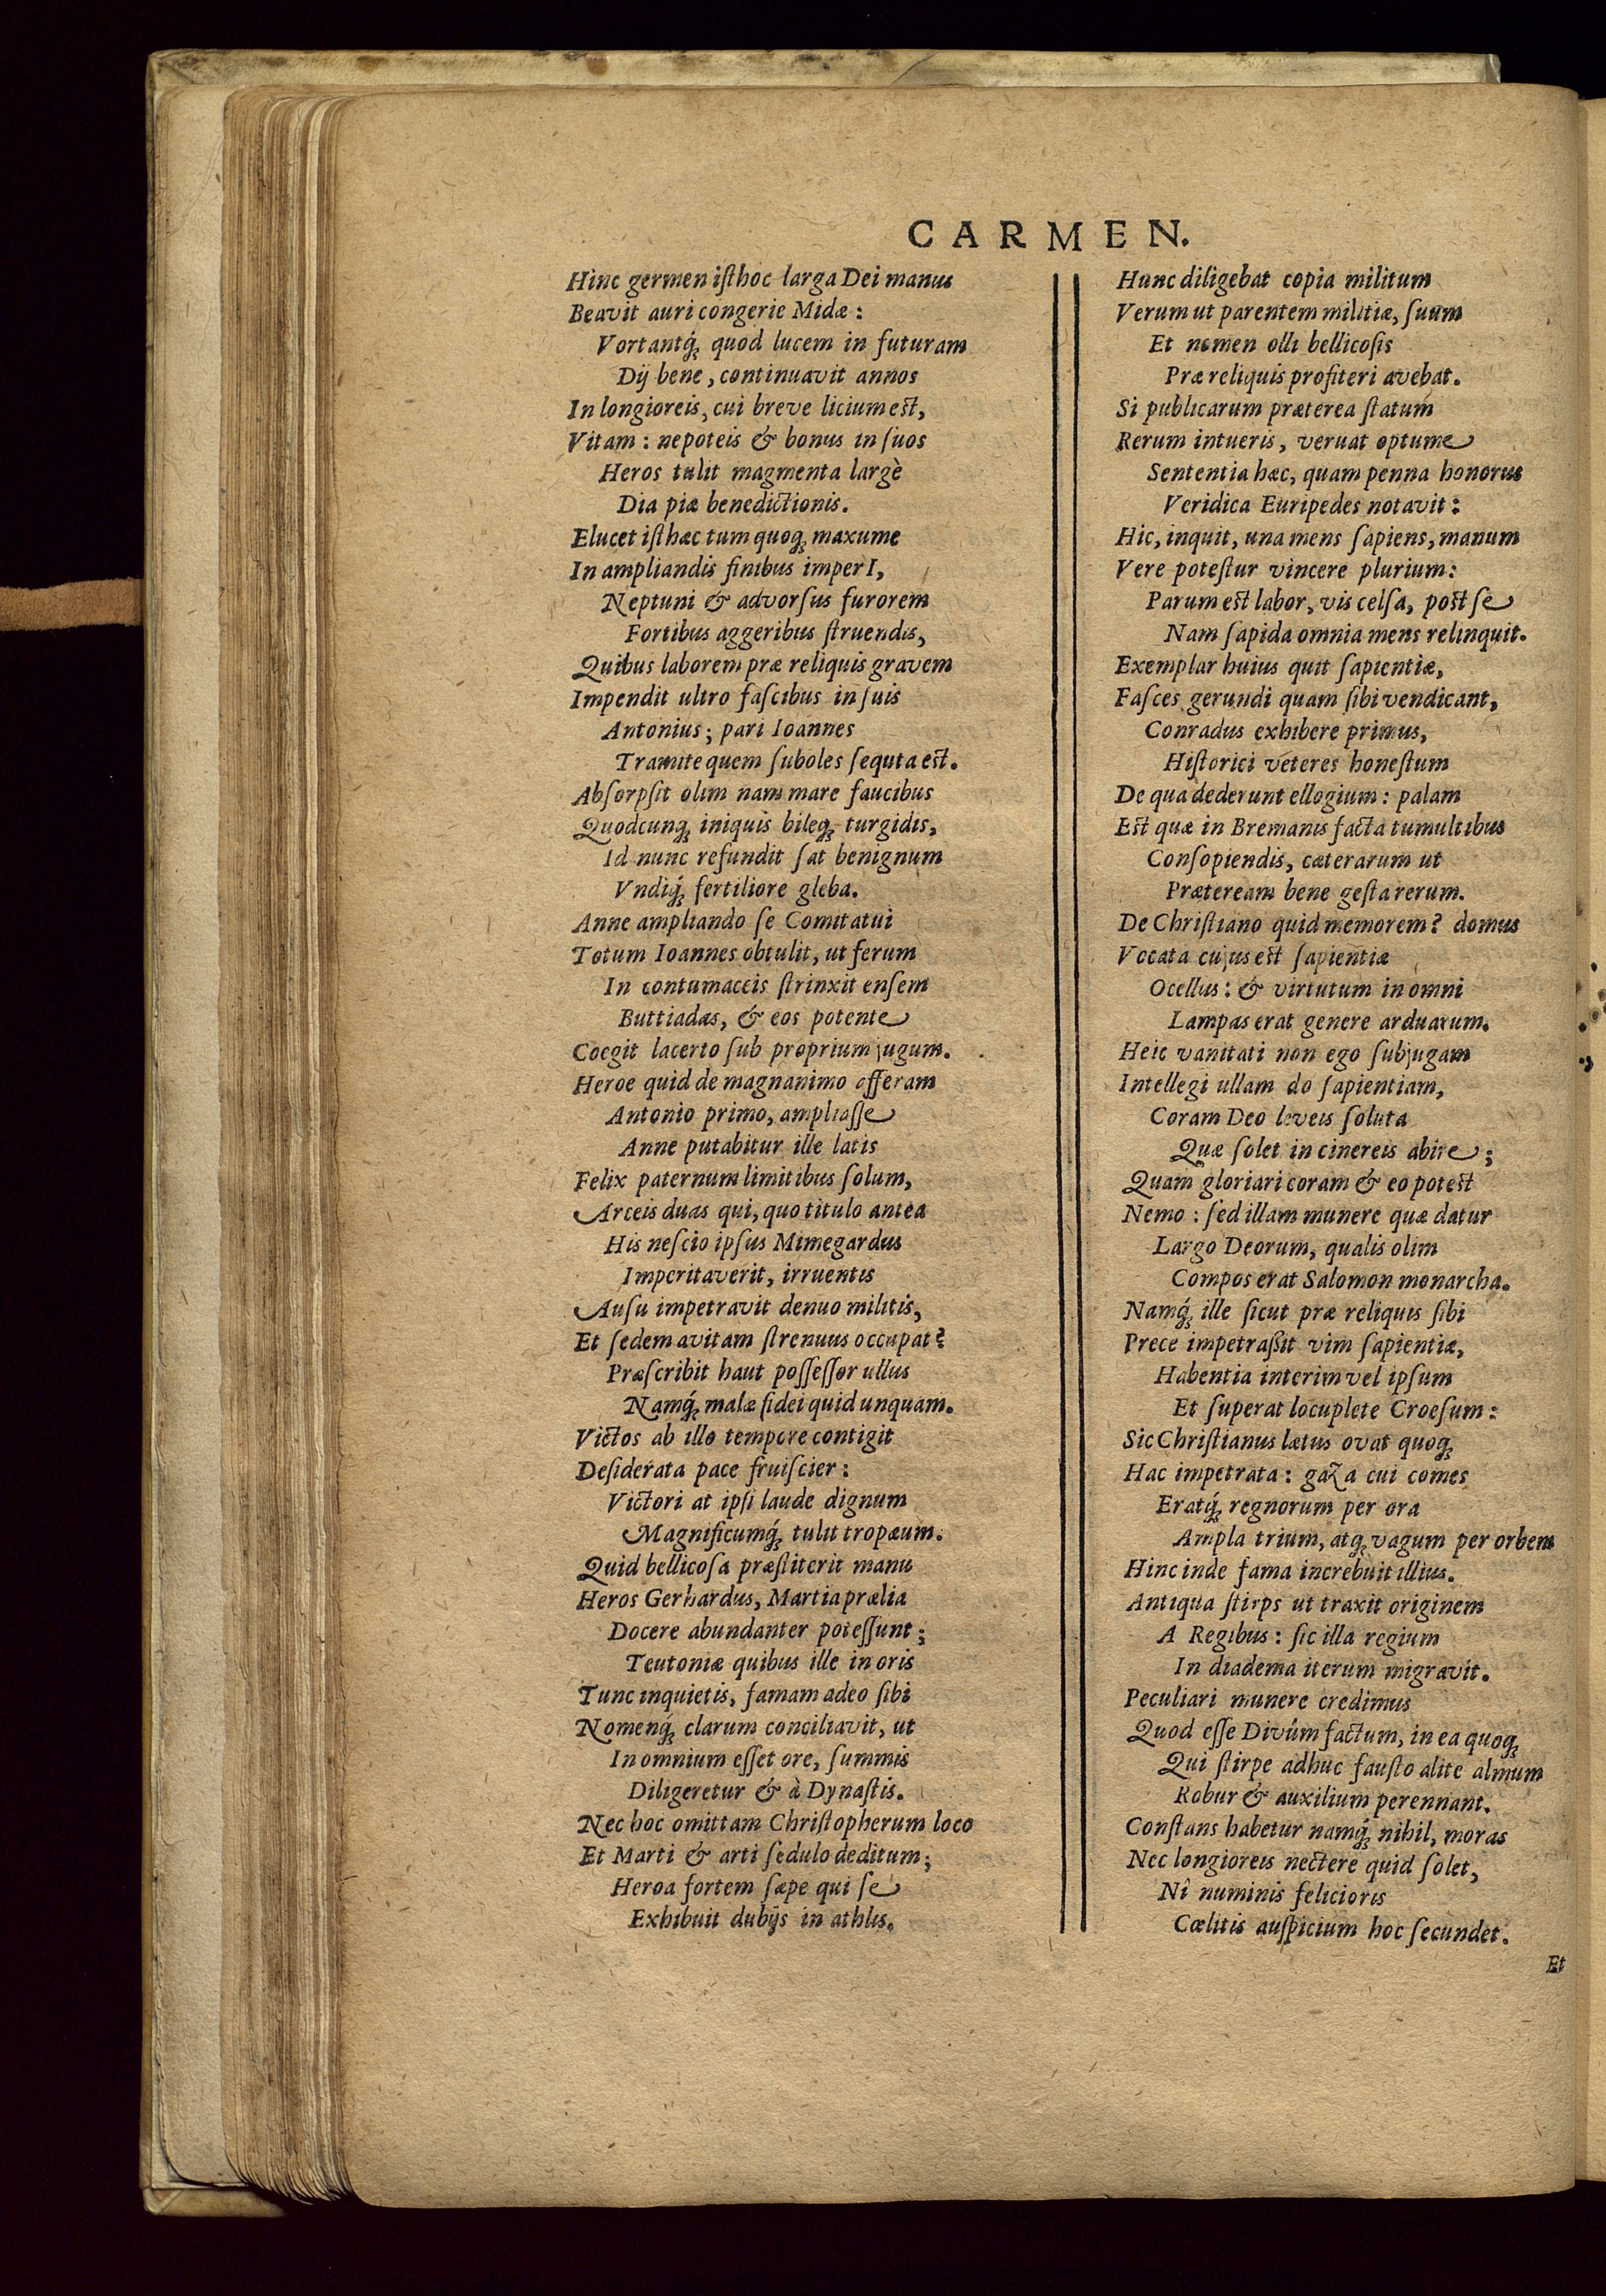 CARMEN.
Hinc germen iſthoc larga Dei manus
Beavit auri congerie Midæ:
Vortantq́ꝫ quod lucem in futuram
Dij bene, continuavit annos
In longioreis, cui breve licium est,
Vitam: nepoteis & bonus in ſuos
Heros tulit magmenta largè
Dia piæ benedictionis.
Elucet iſthæc tum quoqꝫ maxume
In ampliandis finibus imperI,
Neptuni & advorſus furorem
Fortibus aggeribus ſtruendis,
Quibus laborem præ reliquis gravem
Impendit ultro faſcibus in ſuis
Antonius; pari Ioannes
Tramite quem ſuboles ſequta est.
Abſorpſit olim nam mare faucibus
Quodcunqꝫ iniquis bileqꝫ turgidis,
Id nunc refundit ſat benignum
Vndiq́ꝫ fertiliore gleba.
Anne ampliando ſe Comitatui
Totum Ioannes obtulit, ut ferum
In contumaceis ſtrinxit enſem
Buttiadas, & eos potente
Coegit lacerto ſub proprium jugum.
Heroe quid de magnanimo afferam
Antonio primo, ampliaſſe
Anne putabitur ille latis
Felix paternum limitibus ſolum,
Arceis duas qui, quo titulo antea
His neſcio ipſus Mimegardus
Imperitaverit, irruentis
Auſu impetravit denuo militis,
Et ſedem avitam ſtrenuus occupat?
Præſcribit haut poſſeſſor ullus
Namq́ꝫ malæ fidei quid unquam.
Victos ab illo tempore contigit
Deſiderata pace fruiſcier:
Victori at ipſi laude dignum
Magnificumq́ꝫ tulit tropæum.
Quid bellicoſa præſtiterit manu
Heros Gerhardus, Martia prælia
Docere abundanter poteſſunt;
Teutoniæ quibus ille in oris
Tunc inquietis, famam adeo ſibi
Nomenq́ꝫ clarum conciliavit, ut
In omnium eſſet ore, ſummis
Diligeretur & à Dynaſtis.
Nec hoc omittam Chriſtopherum loco
Et Marti & arti ſedulo deditum;
Heroa fortem ſæpe qui ſe
Exhibuit dubijs in athlis.
Hunc diligebat copia militum
Verum ut parentem militiæ, ſuum
Et nomen olli bellicoſis
Præ reliquis profiteri avebat.
Si publicarum præterea ſtatum
Rerum intueris, veruat optume
Sententia hæc, quam penna honorus
Veridica Euripedes notavit:
Hic, inquit, una mens ſapiens, manum
Vere poteſtur vincere plurium:
Parum est labor, vis celſa, post ſe
Nam ſapida omnia mens relinquit.
Exemplar huius quit ſapientiæ,
Faſces gerundi quam ſibi vendicant,
Conradus exhibere primus,
Hiſtorici véteres honeſtum
De qua dederunt ellogium: palam
Est quæ in Bremanis facta tumultibus
Conſopiendis, cæterarum ut
Præteream bene geſta rerum.
De Chriſtiano quid memorem? domus
Vocata cujus est ſapientiæ
Ocellus: & virtutum in omni
Lampas erat genere arduarum.
Heic vanitati non ego ſubjugam
Intellegi ullam do ſapientiam,
Coram Deo leveis ſoluta
Quæ ſolet in cinereis abire;
Quam gloriari coram & eo potest
Nemo: ſed illam munere quæ datur
Largo Deorum, qualis olim
Compos erat Salomon monarcha.
Namq́ꝫ ille ſicut præ reliquis ſibi
Prece impetraßit vim ſapientiæ,
Habentia interim vel ipſum
Et ſuperat locuplete Croeſum:
Sic Chriſtianus lætus ovat quoqꝫ
Hac impetrata: gaza cui comes
Eratq́ꝫ regnorum per ora
Ampla trium, atqꝫ vagum per orbem
Hinc inde fama increbuit illius.
Antiqua ſtirps ut traxit originem
A Regibus: ſic illa regium
In diadema iterum migravit.
Peculiari munere credimus
Quod eſſe Divûm factum, in ea quoqꝫ
Qui ſtirpe adhuc fauſto alite almum
Robur & auxilium perennant.
Conſtans habetur namq́ꝫ nihil, moras
Nec longioreis nectere quid ſolet,
Nî numinis felicioris
Cœlitis auſpicium hoc ſecundet.
Et